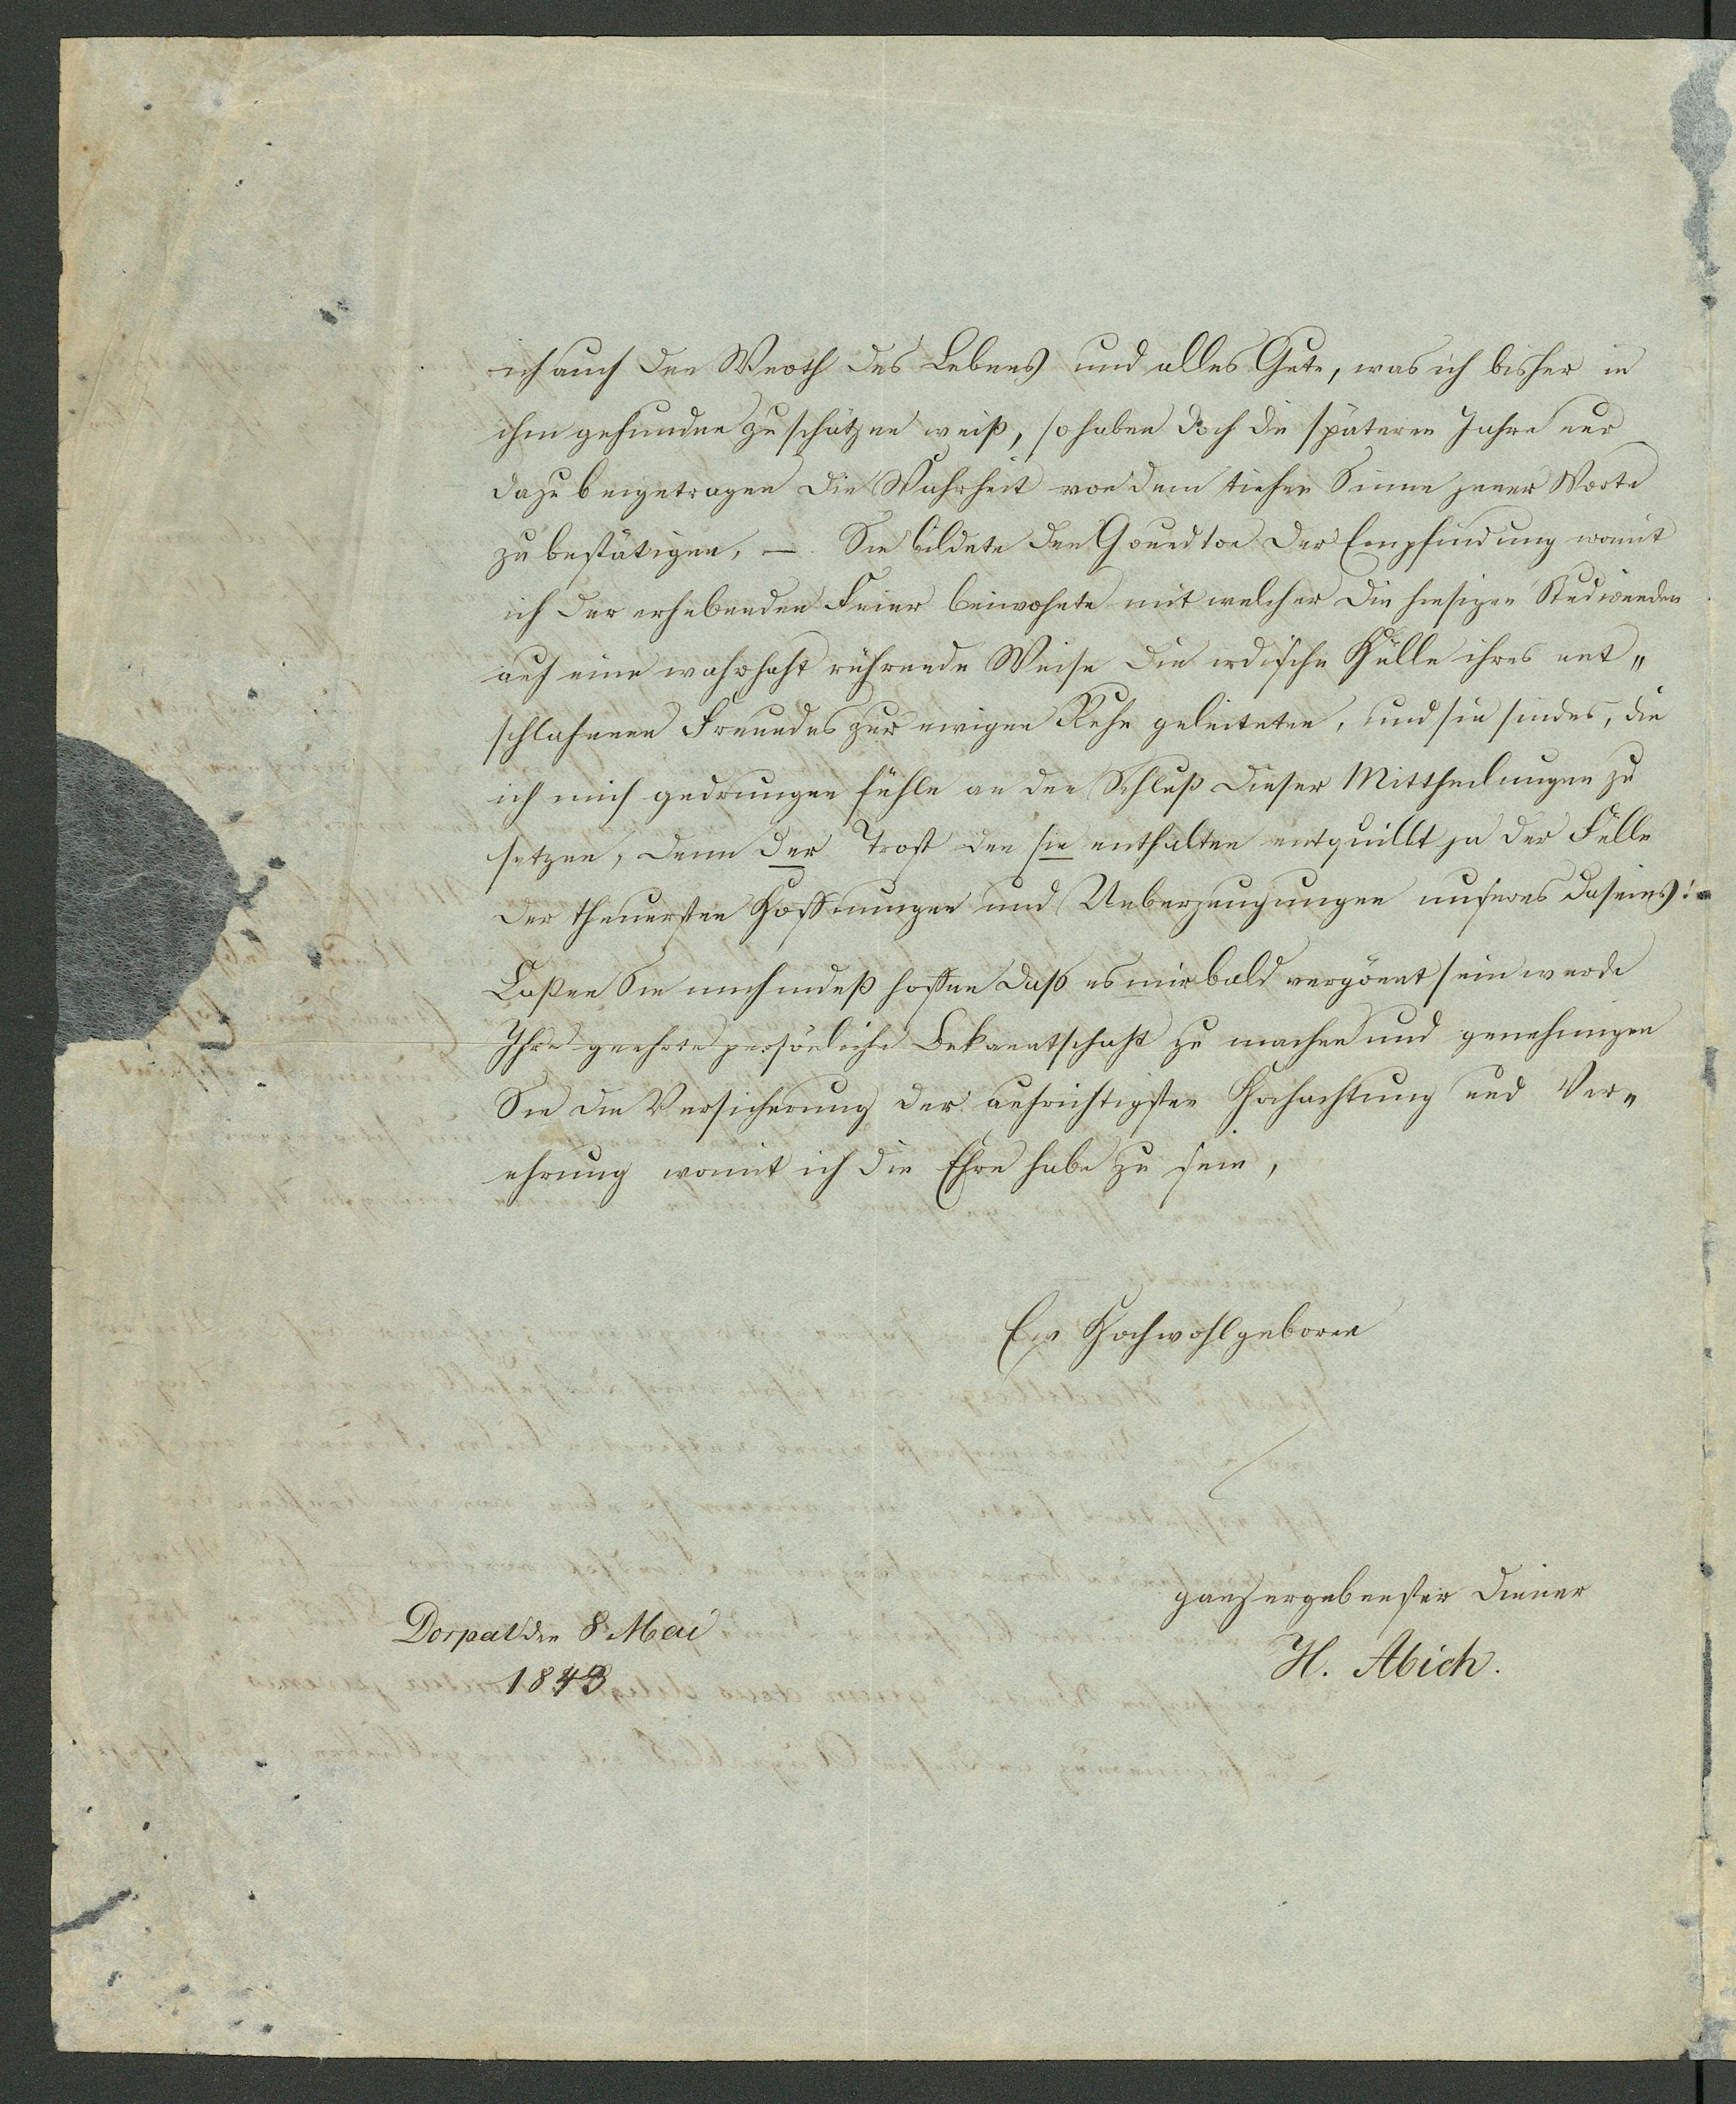 ich auch den Werth des Lebens und alles Gute, was ich bisher in
ihm gefunden zu schätzen weiß, so haben doch die späteren Jahre nur
dazu beigetragen die Wahrheit von dem tiefen Sinne jener Worte
zu bestätigen, — Sie bildete den Grundton der Empfindung womit
ich der erhebenden Feier beiwohnte mit welcher die hiesigen Studirenden
auf eine wahrhaft rührende Weise die irdische Hülle ihres ent„
schlafenen Freundes zur ewigen Ruhe geleiteten, und sie sind es, die
ich mich gedrungen fühle an den Schluß dieser Mittheilungen zu
setzen, denn der Trost den sie enthalten entquillt ja der Fülle
der theuersten Hoffnungen und Ueberzeugungen unseres Daseins!
Laßen Sie mich indeß hoffen daß es mir bald vergönnt sein werde
Ihre geehrte persönliche Bekanntschaft zu machen und genehmigen
Sie die Versicherung der aufrichtigsten Hochachtung und Ver„
ehrung womit ich die Ehre habe zu sein,
Ew Hochwohlgeboren
ganz ergebenster Diener
Dorpat den 8 Mai
H. Abich.
1843